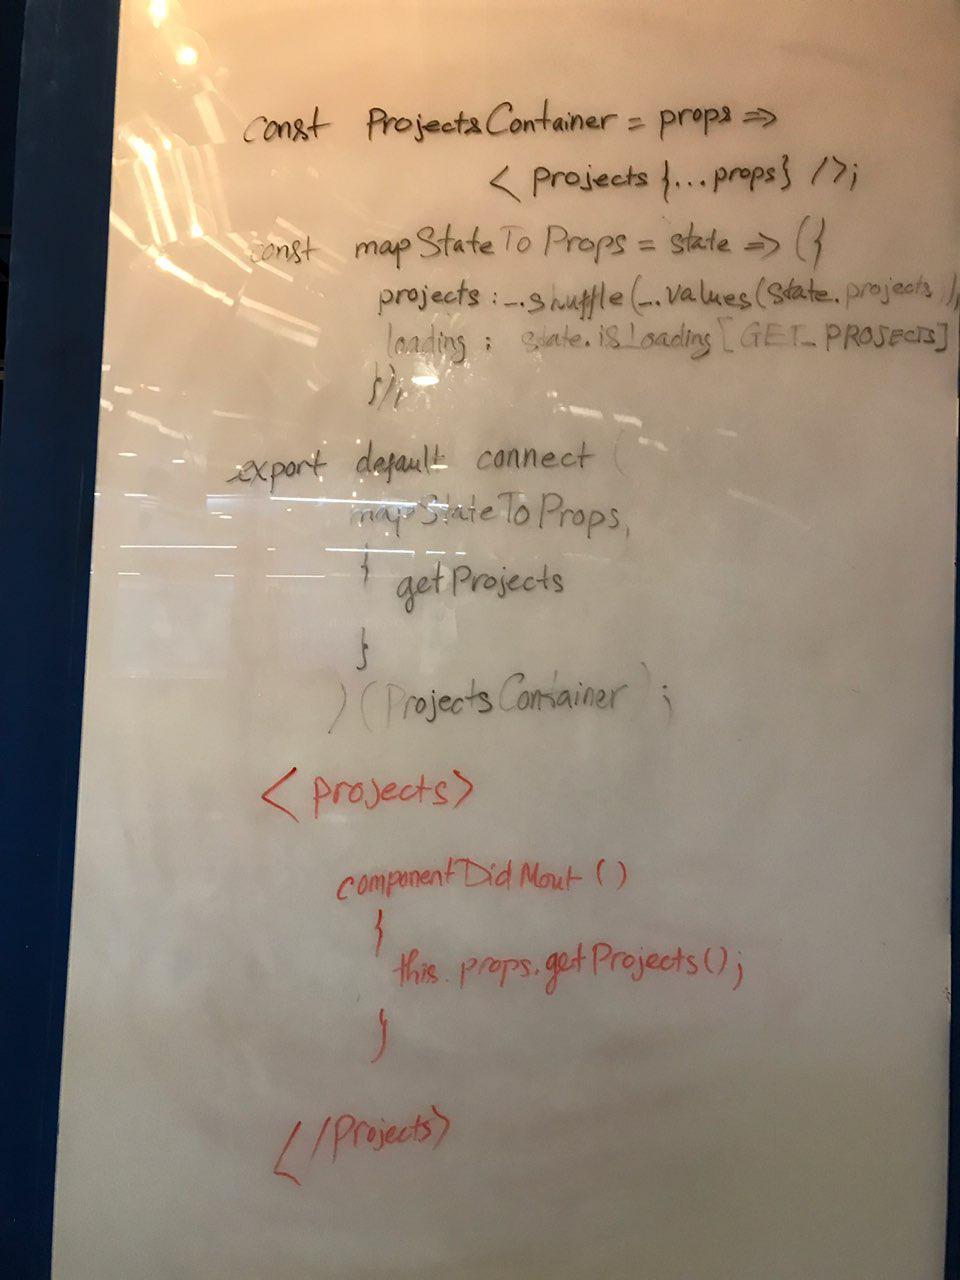 const ProjectsContainer = props =>
< Projects {...props} />;
const mapStateToProps = state => ({
projects : _.shuffle(_.values(state.projects)),
loading : state.isLoading[GET_PROJECTS]
});
export default connect (
mapStateToProps,
{
getProjects
}
)(ProjectsContainer);
<Projects>
componentDidMout ()
{
this.props.getProjects();
}
</Projects>